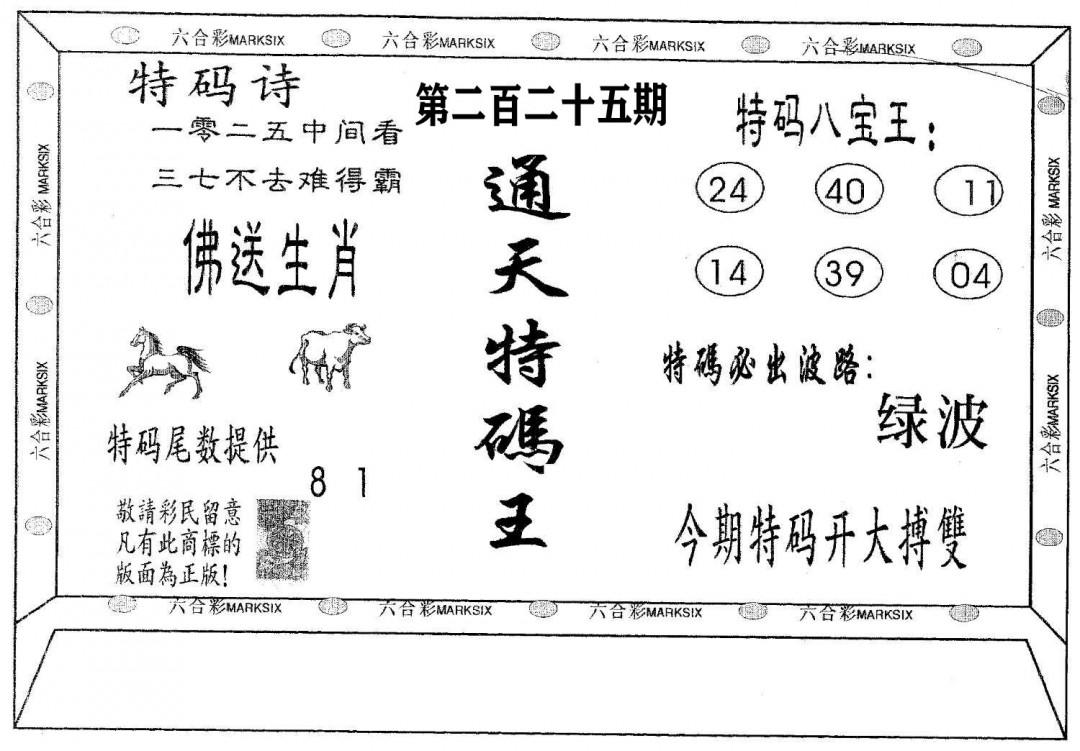 六合彩MARKSIX 六合彩MARKSIX 六合彩MARKSIX 六合彩MARKSIX
特码诗
一零二五中间看
三七不去难得霸
佛送生肖
特码尾数提供
8 1
敬請彩民留意
凡有此商標的
版面為正版!
第二百二十五期
通天特碼王
特码八宝王:
24 40 11
14 39 04
特碼必出波路:
绿波
今期特码开大搏雙
六合彩 MARKSIX
六合彩MARKSIX
六合彩 MARKSIX
六合彩MARKSIX
六合彩MARKSIX 六合彩MARKSIX 六合彩MARKSIX 六合彩MARKSIX